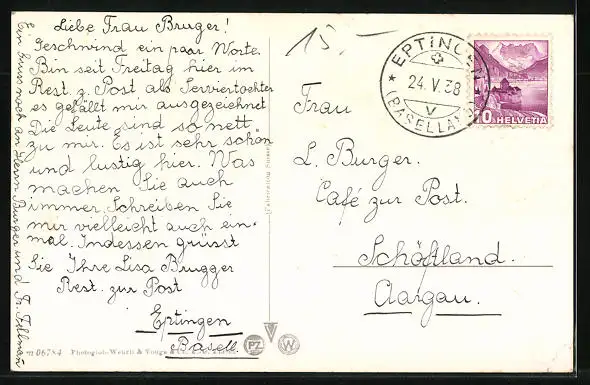 Liebe Frau Bruger!
Geschwind ein paar Worte.
Bin seit Freitag hier im
Rest. z. Post als Serviertochter
es gefällt mir ausgezeichnet
Die Leute sind so nett
zu mir. Es ist sehr schön
und lustig hier. Was
machen Sie auch
immer. Schreiben Sie
mir vielleicht auch ein-
mal. Indessen grüsst
Sie Ihre Lisa Brugger
Rest. zur Post
Eptingen
Basell.
Ein Gruss noch an Herrn Burger und Fr.
15.—
EPTINGEN
24. V. 38
V
(BASELLAND)
10 HELVETIA
Frau
L. Burger.
Café zur Post.
Schöftland.
Aargau.
Photoglob-Wehrli & Vouga & Co.
PZ W